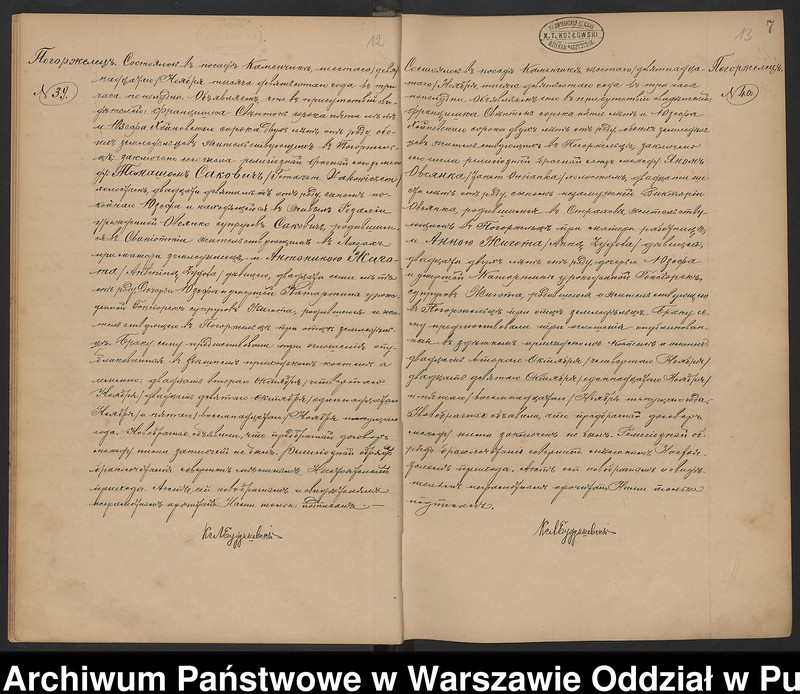 12
Погоржелецъ. Состоялось въ посадѣ Каменчикъ, шестаго /девят
надцатаго/ Ноября тысяча девятисотаго года въ три
№ 39.
часа пополудни. Объявляемъ, что въ присутствіи сви-
дѣтелей: Францишка сорока пяти лѣтъ
и Юзефа сорока двухъ лѣтъ отъ роду, обо-
ихъ земледѣльцевъ жительствующихъ въ Погоржель
цѣ, заключенъ сего числа религіозный брачный союзъ меж
ду Томашомъ Саковичъ, /Tomasz Sakowicz/
холостымъ, двадцати девяти лѣтъ отъ роду, сыномъ по-
койнаго Юзефа и находящейся въ живыхъ Розаліи
урожденной Овсянко супруговъ Саковичъ, родившим-
ся въ жительствующимъ въ
при матери земледѣльцемъ, и Антониною Жиго-
та /Antonina Żygota/ дѣвицею, двадцати семи лѣтъ
отъ роду, дочерью Юзефа и умершей Катаржины урож-
денной супруговъ Жигота, родившеюся и жи-
тельствующею въ Погоржельцѣ при отцѣ земледѣль-
цѣ. Браку сему предшествовали три оглашенія опу-
бликованныя въ здѣшнемъ приходскомъ костелѣ а
именно: двадцать втораго Октября /четвертаго
Ноября/ двадцать девятаго Октября /одиннадцатаго
Ноября/ и пятаго /восемнадцатаго/ Ноября текущаго
года. Новобрачные объявили, что предбрачный договоръ
между ними заключенъ не былъ. Религіозный обрядъ
бракосочетанія совершенъ мѣстнымъ Настоятелемъ
прихода. Актъ сей новобрачнымъ и свидѣтелямъ
неграмотнымъ прочитанъ Нами только подписанъ. —
13 7
Состоялось въ посадѣ Каменчикъ шестаго /девятнадца Погоржелецъ.
таго/ Ноября тысяча девятисотаго года въ три часа
№ 40.
пополудни. Объявляемъ, что въ присутствіи свидѣтелей
Францишка сорока пяти лѣтъ и Юзефа
сорока двухъ лѣтъ отъ роду, обоихъ земледѣль
цевъ жительствующихъ въ Погоржельцѣ, заключенъ
сего числа религіозный брачный союзъ между Яномъ
Овсянка, /Jan / холостымъ, двадцати ше
сти лѣтъ отъ роду, сыномъ незамужней Викторіи
Овсянка, родившимся въ Страховѣ жительству
ющимъ въ Погоржельцѣ при матери работницѣ,
и Анною Жигота /Anna Żygota/ дѣвицею,
двадцати двухъ лѣтъ отъ роду, дочерью Юзефа
и умершей Катаржины урожденной
супруговъ Жигота, родившеюся и жительствующею
въ Погоржельцѣ при отцѣ земледѣльцѣ. Браку се
му предшествовали три оглашенія опубликован
ныя въ здѣшнемъ приходскомъ костелѣ а именно:
двадцать втораго Октября /четвертаго Ноября/
двадцать девятаго Октября /одиннадцатаго Ноября/
и пятаго /восемнадцатаго/ Ноября текущаго года.
Новобрачные объявили, что предбрачный договоръ
между ними заключенъ не былъ. Религіозный об
рядъ бракосочетанія совершенъ мѣстнымъ Настоя-
телемъ прихода. Актъ сей новобрачнымъ и свидѣ
телямъ неграмотнымъ прочитанъ Нами только
подписанъ.
Archiwum Państwowe w Warszawie Oddział w Pu